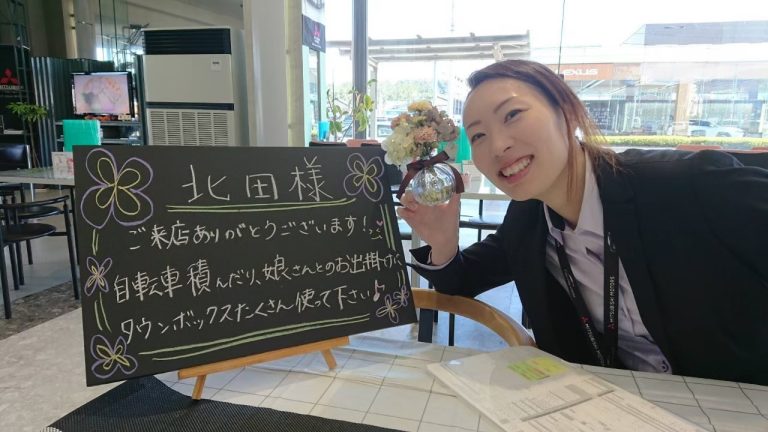 北田様
ご来店ありがとうございます!
自転車積んだり、娘さんとのお出掛けに、
タウンボックスたくさん使って下さい♪
MITSUBISHI MOTORS
LEXUS